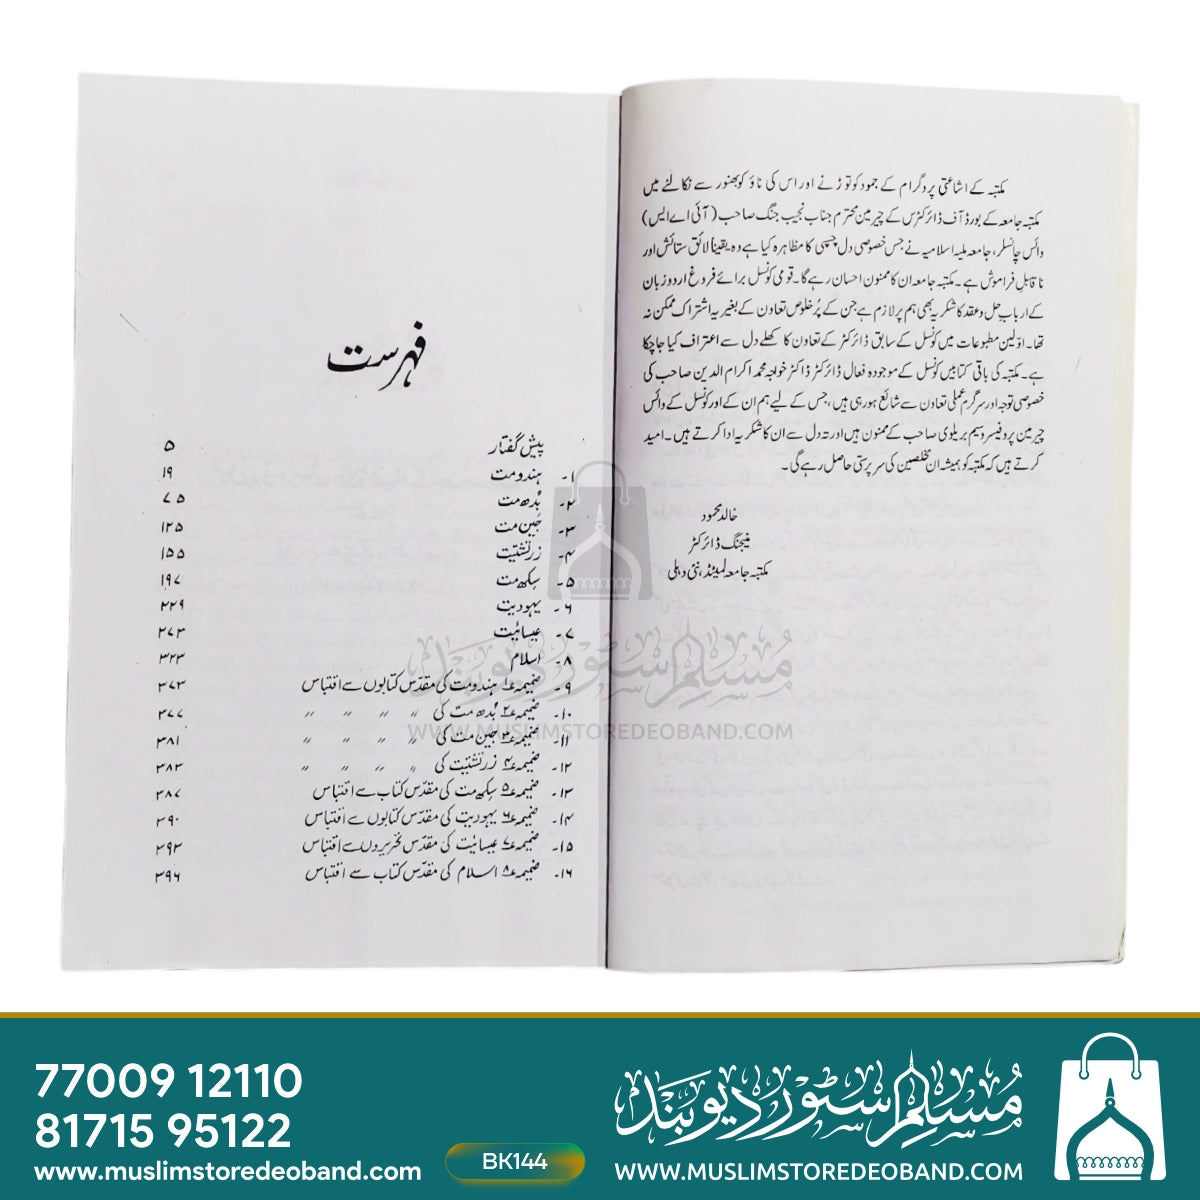 مکتبہ کے اشاعتی پروگرام کے جمود کو توڑنے اور اس کی ناؤ کو بھنور سے نکالنے میں
مکتبہ جامعہ کے بورڈ آف ڈائرکٹرس کے چیرمین محترم جناب نجیب جنگ صاحب (آئی اے ایس)
وائس چانسلر، جامعہ ملیہ اسلامیہ نے جس خصوصی دل چسپی کا مظاہرہ کیا ہے وہ یقیناً لائق ستائش اور
ناقابلِ فراموش ہے۔ مکتبہ جامعہ ان کا ممنون احسان رہے گا۔ قومی کونسل برائے فروغ اردو زبان
کے ارباب حل و عقد کا شکریہ بھی ہم پر لازم ہے جن کے پُر خلوص تعاون کے بغیر یہ اشتراک ممکن نہ
تھا۔ اوّلین مطبوعات میں کونسل کے سابق ڈائرکٹر کے تعاون کا کھلے دل سے اعتراف کیا جا چکا
ہے۔ مکتبہ کی باقی کتابیں کونسل کے موجودہ فعال ڈائرکٹر ڈاکٹر خواجہ محمد اکرام الدین صاحب کی
خصوصی توجہ اور سرگرم عملی تعاون سے شائع ہو رہی ہیں، جس کے لیے ہم ان کے اور کونسل کے وائس
چیرمین پروفیسر وسیم بریلوی صاحب کے ممنون ہیں اور تہ دل سے ان کا شکریہ ادا کرتے ہیں۔ امید
کرتے ہیں کہ مکتبہ کو ہمیشہ ان مخلصین کی سرپرستی حاصل رہے گی۔
خالد محمود
منیجنگ ڈائرکٹر
مکتبہ جامعہ لمیٹڈ، نئی دہلی
فہرست
پیش گفتار ۵
۱۔ ہندو مت ۱۹
۲۔ بُدھ مت ۷۵
۳۔ جین مت ۱۲۵
۴۔ زرتشتیت ۱۵۵
۵۔ سِکھ مت ۱۹۷
۶۔ یہودیت ۲۲۹
۷۔ عیسائیت ۲۷۳
۸۔ اسلام ۳۲۳
۹۔ ضمیمہ ۱ ہندو مت کی مقدّس کتابوں سے اقتباس ۳۷۳
۱۰۔ ضمیمہ ۲ بُدھ مت کی 〃 〃 〃 〃 ۳۷۷
۱۱۔ ضمیمہ ۳ جین مت کی 〃 〃 〃 〃 ۳۸۱
۱۲۔ ضمیمہ ۴ زرتشتیت کی 〃 〃 〃 〃 ۳۸۳
۱۳۔ ضمیمہ ۵ سِکھ مت کی مقدّس کتاب سے اقتباس ۳۸۷
۱۴۔ ضمیمہ ۶ یہودیت کی مقدّس کتابوں سے اقتباس ۳۹۰
۱۵۔ ضمیمہ ۷ عیسائیت کی مقدّس تحریروں سے اقتباس ۳۹۳
۱۶۔ ضمیمہ ۸ اسلام کی مقدّس کتاب سے اقتباس ۳۹۶
مسلم سٹور دیوبند
WWW.MUSLIMSTOREDEOBAND.COM
77009 12110
81715 95122
www.muslimstoredeoband.com
BK144
مسلم سٹور دیوبند
WWW.MUSLIMSTOREDEOBAND.COM